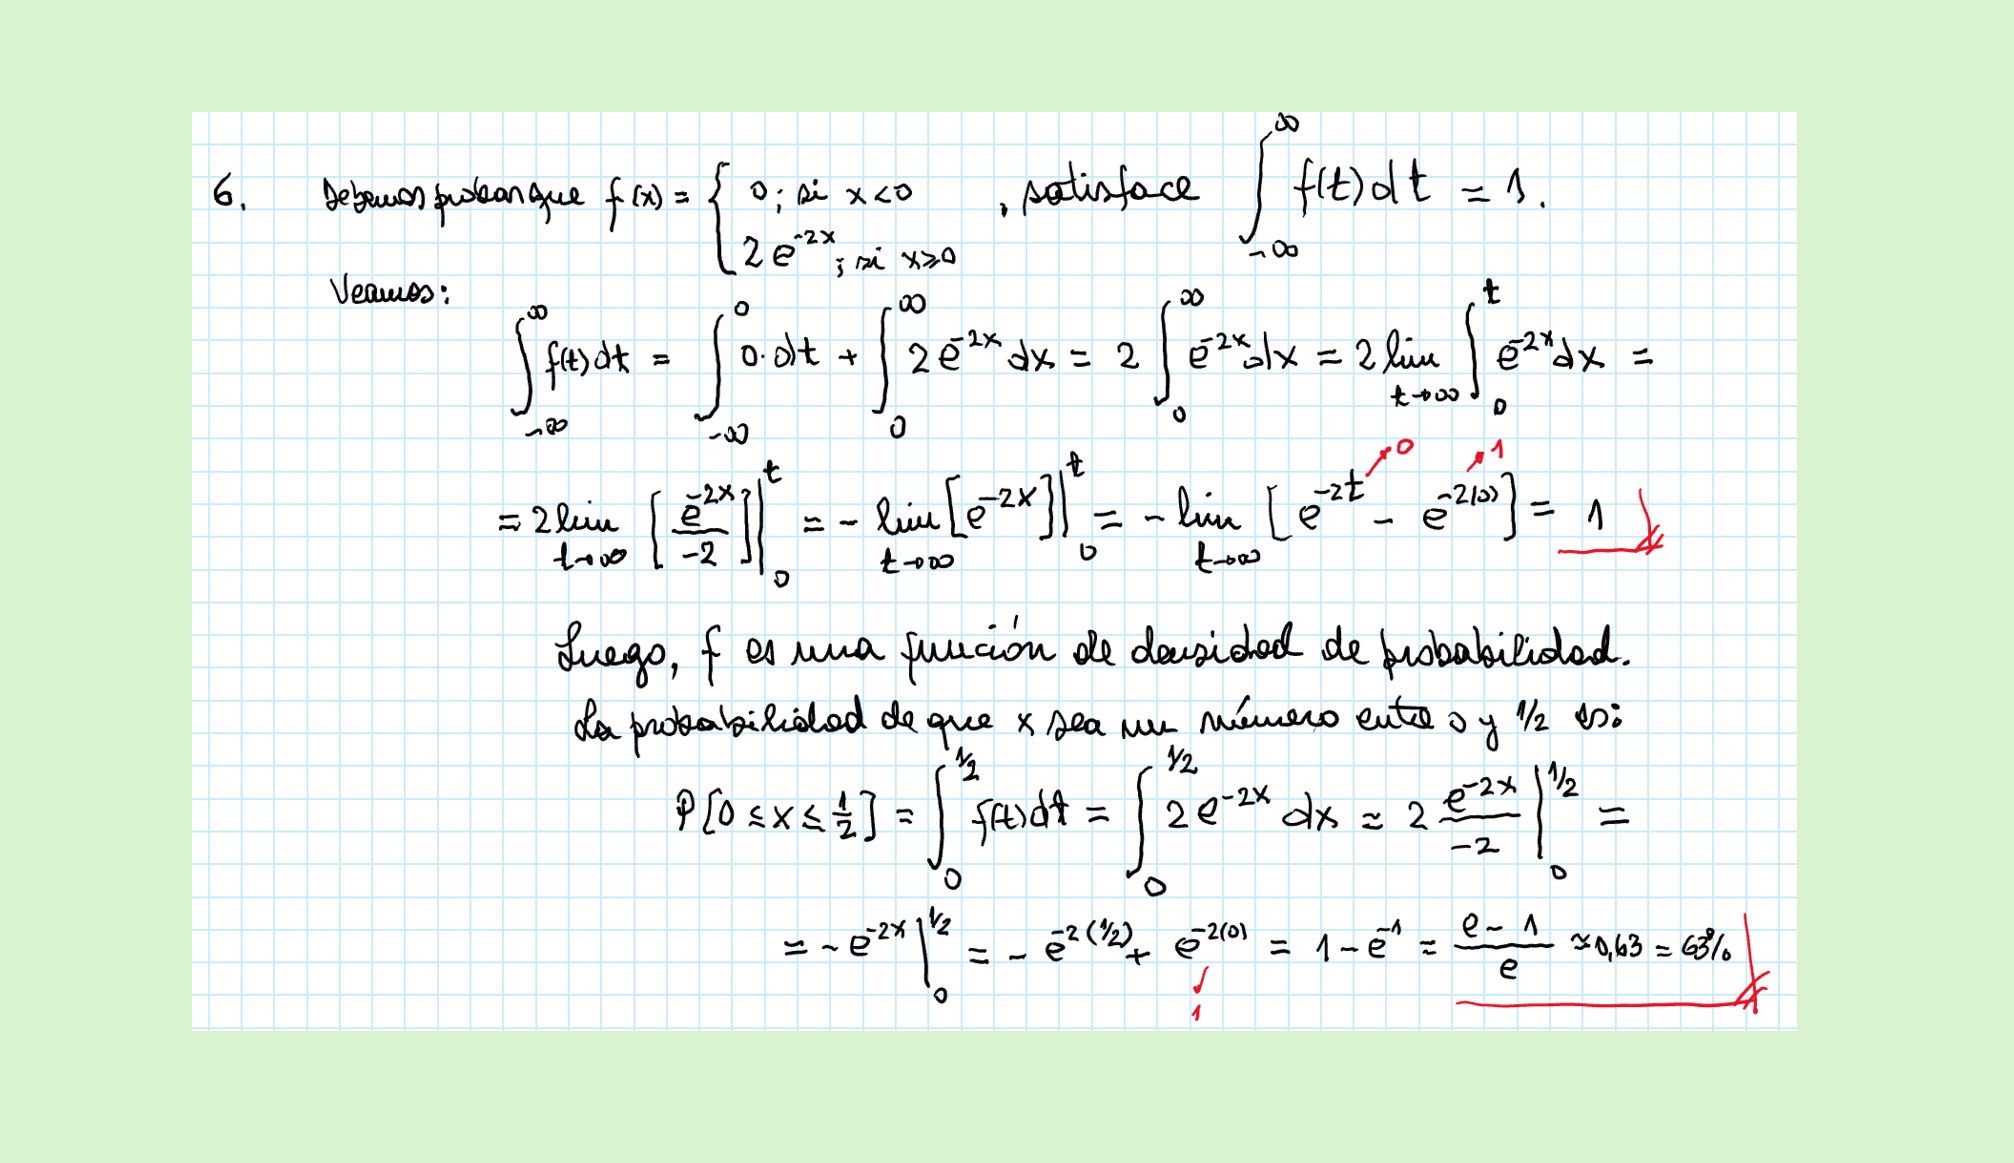 6. Debemos probar que f(x) = { 0; si x<0 , satisface ∫_{-∞}^{∞} f(t)dt = 1.
2e^{-2x}; si x≥0
Veamos:
∫_{-∞}^{∞} f(t)dt = ∫_{-∞}^{0} 0·dt + ∫_{0}^{∞} 2e^{-2x} dx = 2 ∫_{0}^{∞} e^{-2x} dx = 2 lim_{t→∞} ∫_{0}^{t} e^{-2x} dx =
= 2 lim_{t→∞} [e^{-2x}/-2]|_{0}^{t} = - lim_{t→∞} [e^{-2x}]|_{0}^{t} = - lim_{t→∞} [e^{-2t} ↗0 - e^{-2(0)} ↗1] = 1
Luego, f es una función de densidad de probabilidad.
La probabilidad de que x sea un número entre 0 y 1/2 es:
P[0 ≤ x ≤ 1/2] = ∫_{0}^{1/2} f(t)dt = ∫_{0}^{1/2} 2e^{-2x} dx = 2 e^{-2x}/-2 |_{0}^{1/2} =
= -e^{-2x} |_{0}^{1/2} = -e^{-2(1/2)} + e^{-2(0)} = 1 - e^{-1} = (e-1)/e ≈ 0,63 = 63%
1